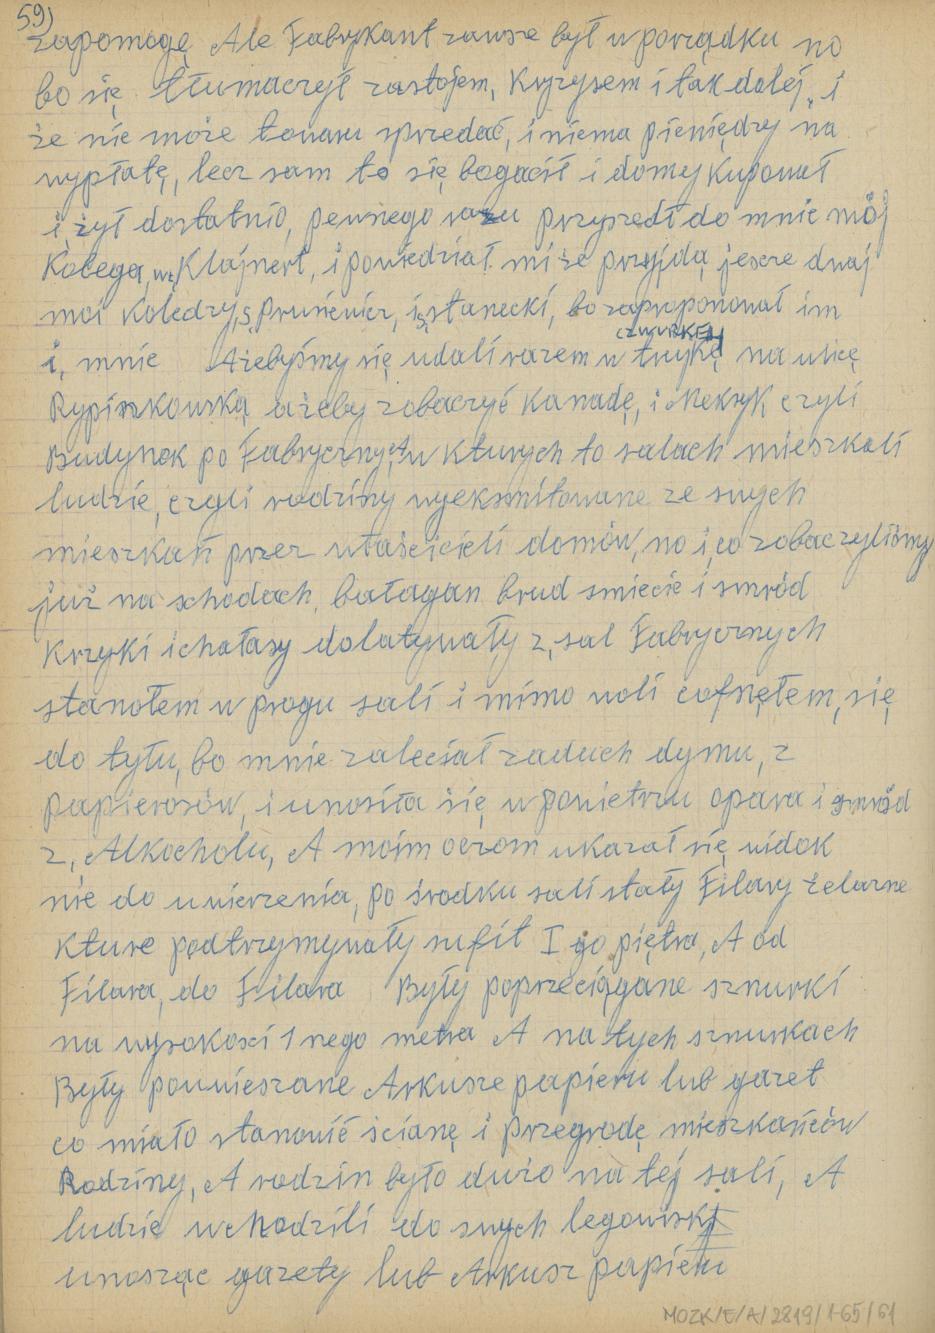 59)
zapomogę Ale Fabrykant zawsze był w porządku no
bo się tłumaczył zastojem, Kryzysem i tak dalej, i
że nie może towaru sprzedać, i niema pieniędzy na
wypłatę, lecz sam to się bogacił i domy Kupował
i, żył dostatnio, pewnego razu przyszedł do mnie mój
Kolega, Klajnert, i powiedział mi że przyjdą jesze dwaj
moi Koledzy, S, Pruśeńier, i, S, stanecki, bo zaproponował im
CZWURKEM
i, mnie Ażebyśmy się udali razem w trujkę na ulicę
Rypinkowską ażeby zobaczyć Kanadę, i Meksyk, czyli
Budynek po Fabrycznych w Kturych to salach mieszkali
ludzie, czyli rodziny wyeksmitowane ze swych
mieszkań przez właścicieli domów, no i co zobaczyliśmy
już na schodach, bałagan brud smiecie i smród
Krzyki i chałasy dolatywały z, sal Fabrycznych
stanołem w progu sali i mimo woli cofnęłem, się
do tyłu, bo mnie zaleciał zaduch dymu, z
papierosów, i unosiła się w powietrzu opara i smród
z, Alkocholu, A moim oczom ukazał się widok
nie do uwierzenia, po środku sali stały Filary żelazne
Kture podtrzymywały sufit I go piętra, A od
Filara, do Filara Były poprzeciągane sznurki
na wysokosci 1 nego metra A na tych sznurkach
Były powwieszane Arkusze papieru lub gazet
co miało stanowić ścianę i przegrodę mieszkańców
Rodziny, A rodzin było dużo na tej sali, A
ludzie wchodzili do swych legowisk
unosząc gazety lub Arkusz papieru
MOZK/E/A/2819/1-65/61